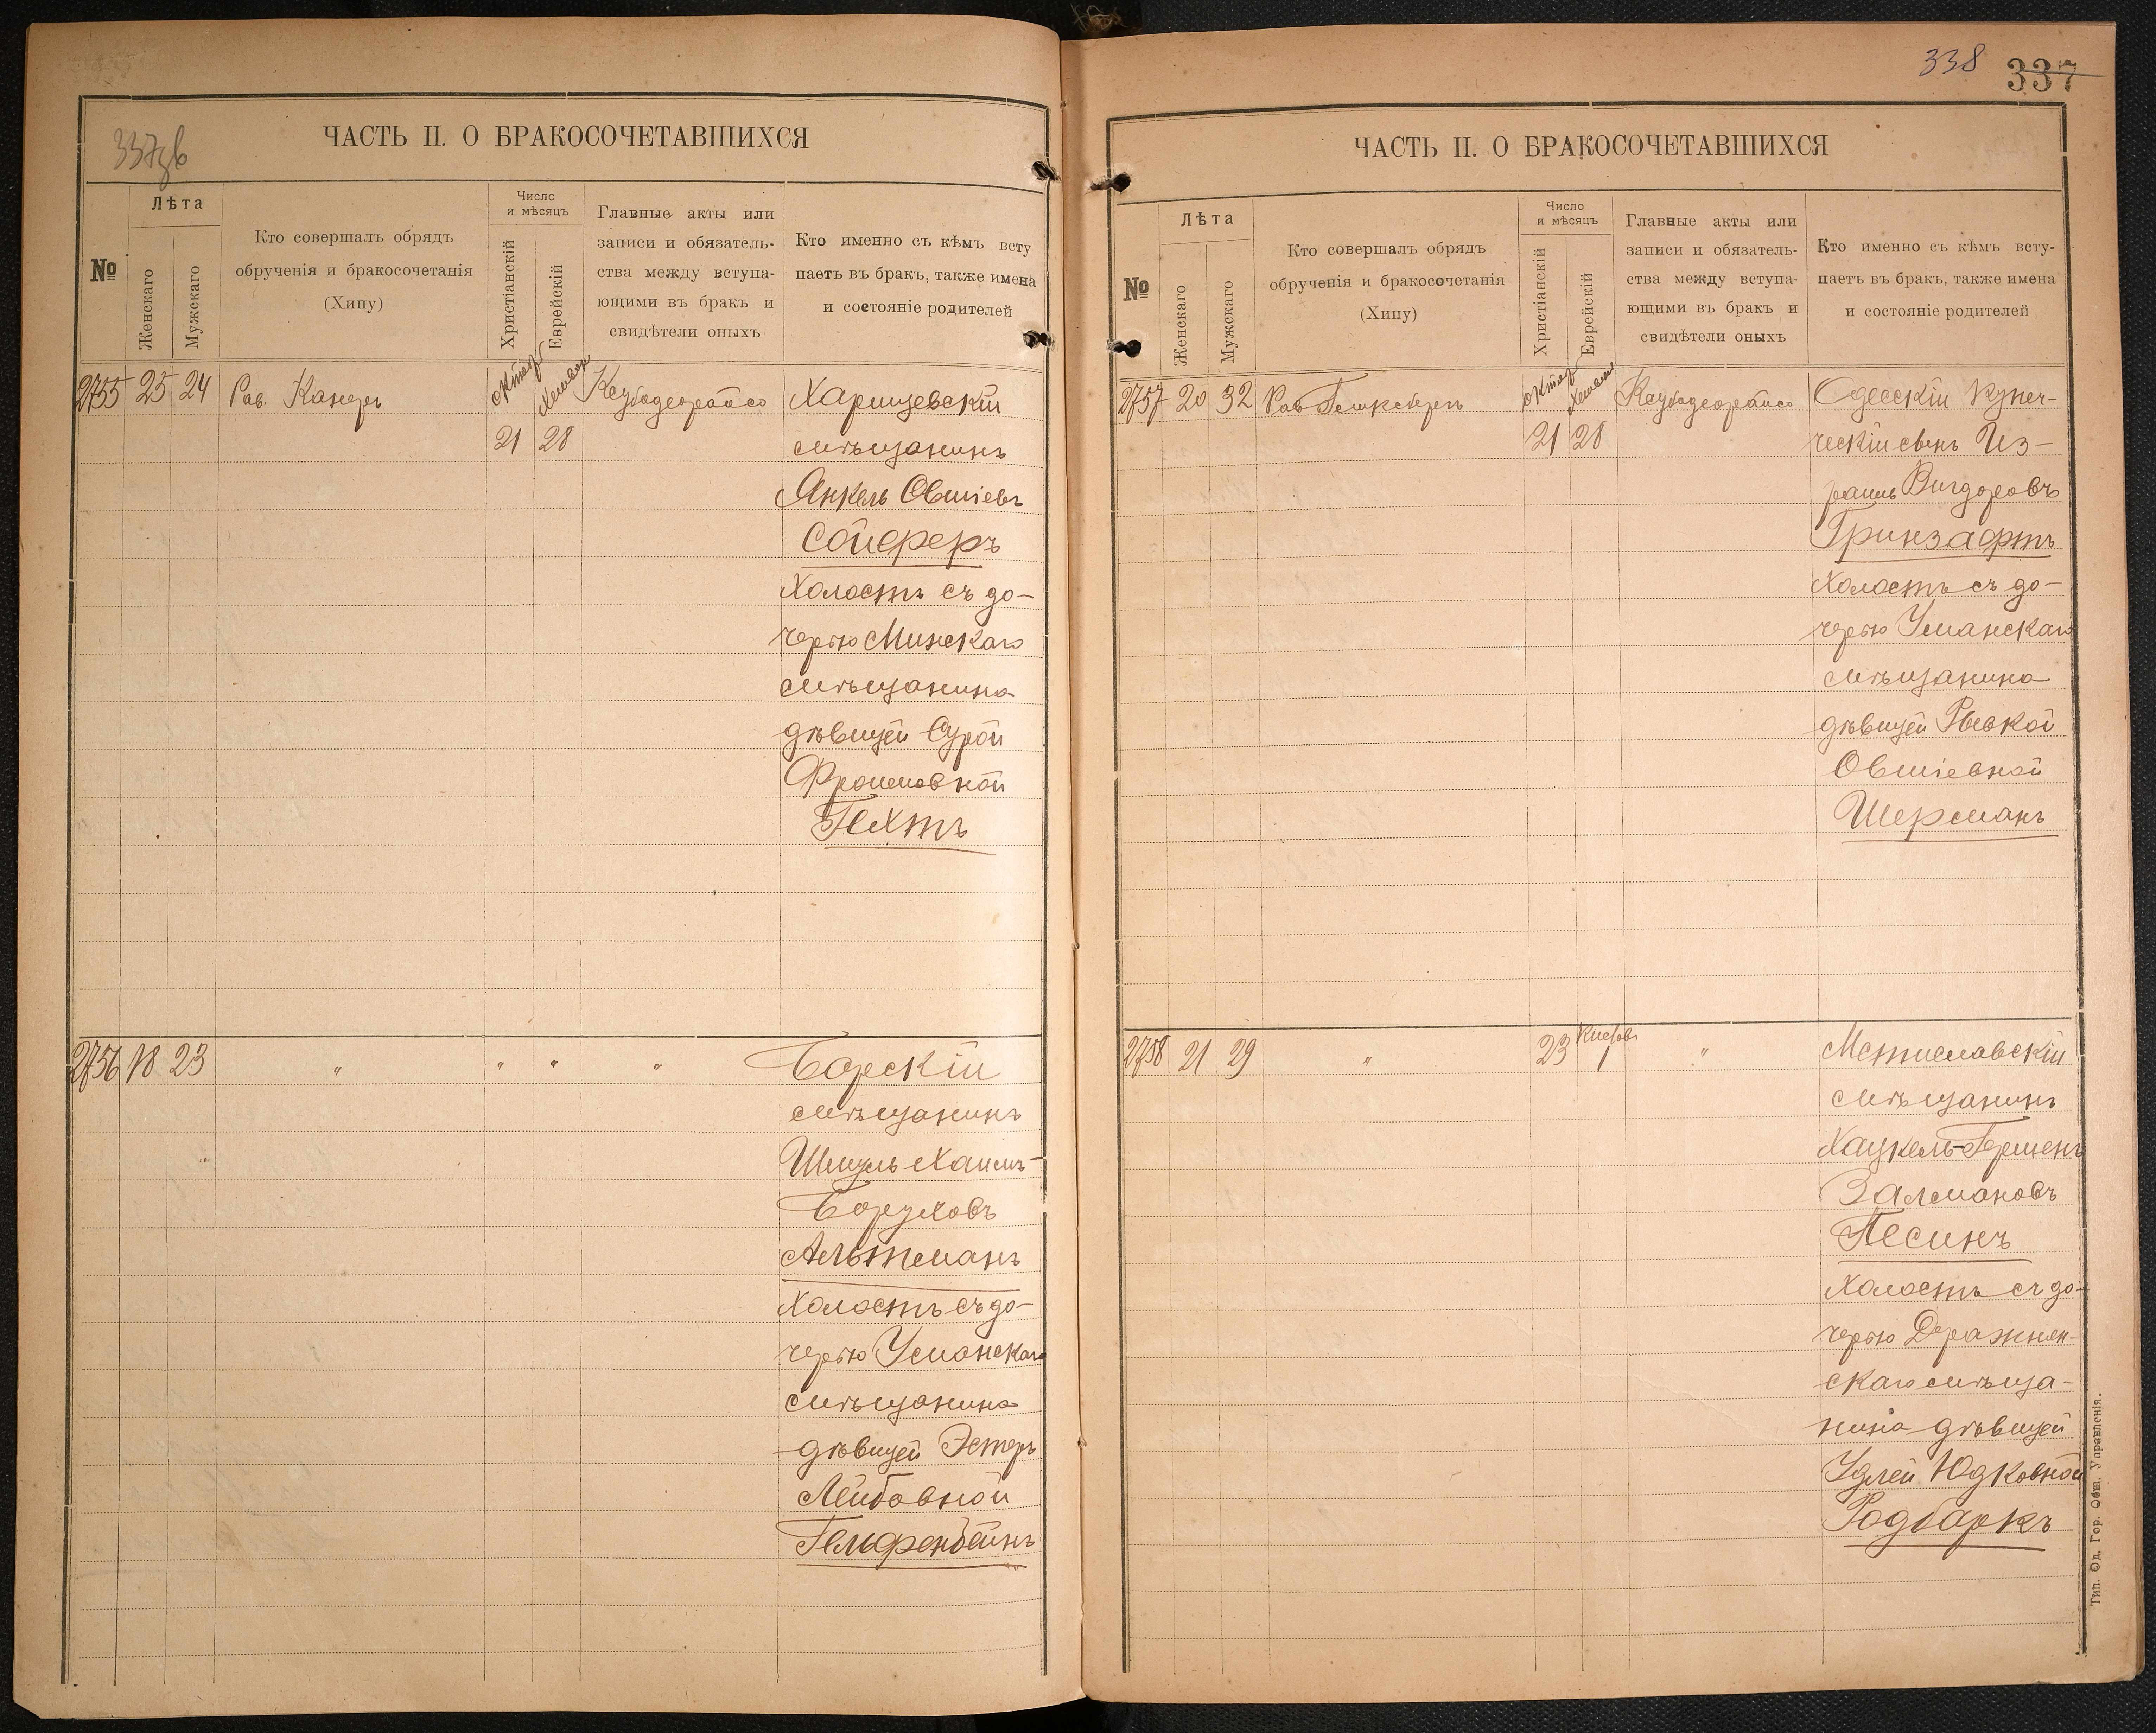 337об
ЧАСТЬ II. О БРАКОСОЧЕТАВШИХСЯ
№
Лѣта
Женскаго
Мужскаго
Кто совершалъ обрядъ
обрученія и бракосочетанія
(Хипу)
Число
и мѣсяцъ
Христіанскій
Еврейскій
Главные акты или
записи и обязатель-
ства между вступа-
ющими въ бракъ и
свидѣтели оныхъ
Кто именно съ кѣмъ всту
паетъ въ бракъ, также имена
и состояніе родителей
2755 25 24 Рав. Канеръ
Октяб
21 28
Харицевскій
мѣщанинъ
Янкель Овшіевъ
Сойферъ
холостъ съ до-
черью Минскаго
мѣщанина
дѣвицей Сурой
Фроимовной
Гехтъ
2756 18 23 " " " "
Борскій
мѣщанинъ
Шмуль Хаимъ-
Боруховъ
Альтманъ
холостъ съ до-
черью Уманскаго
мѣщанина
дѣвицей Эстеръ
Лейбовной
Гельфенбейнъ
338 337
ЧАСТЬ II. О БРАКОСОЧЕТАВШИХСЯ
№
Лѣта
Женскаго
Мужскаго
Кто совершалъ обрядъ
обрученія и бракосочетанія
(Хипу)
Число
и мѣсяцъ
Христіанскій
Еврейскій
Главные акты или
записи и обязатель-
ства между вступа-
ющими въ бракъ и
свидѣтели оныхъ
Кто именно съ кѣмъ всту-
паетъ въ бракъ, также имена
и состояніе родителей
2757 20 32 Рав
Октяб
21 28
Одесскій купе-
ческій сынъ Из-
раиль Вигдоровъ
Гринзафтъ
холостъ съ до-
черью Уманскаго
мѣщанина
дѣвицей Ривкой
Овшіевной
Шерманъ
2758 21 29 " 23 Кислевъ 1 "
Мстиславскій
мѣщанинъ
Хацкель-Гершенъ
Залмановъ
Песинъ
холостъ съ до-
черью Деражнян-
скаго мѣща-
нина дѣвицей
Удлей Юдковной
Родбаркъ
Тип. Од. Гор. Общ. Управленія.